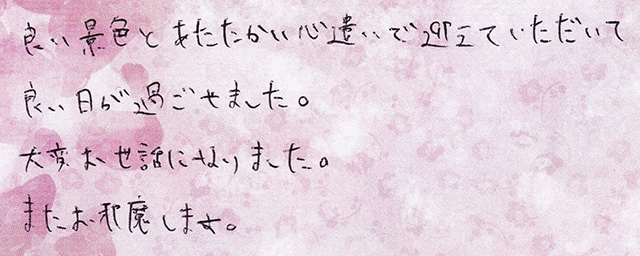 良い景色とあたたかい心遣いで迎えていただいて
良い日が過ごせました。
大変お世話になりました。
またお邪魔します。